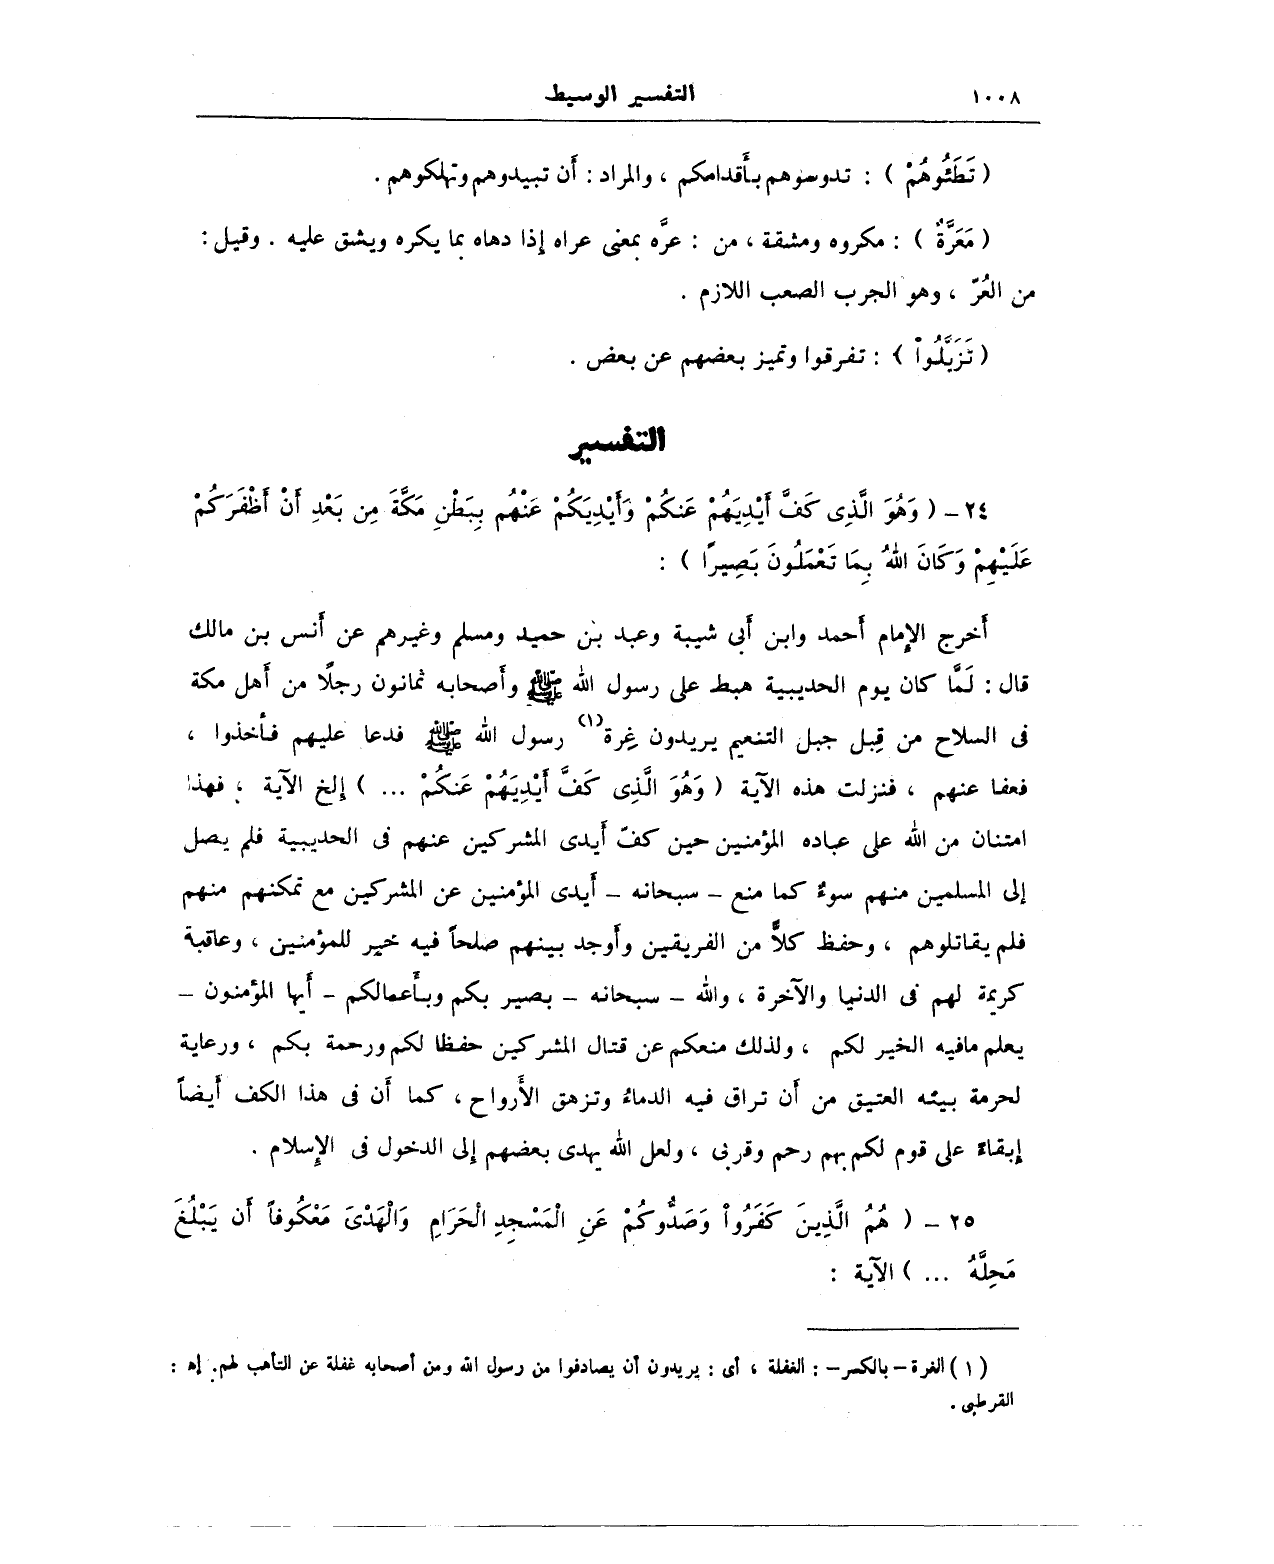 ١٠٠٨ التفسير الوسيط
( تَطَئُوهُمْ ) : تدوسوهم بأَقدامكم ، والمراد : أَن تبيدوهم وتهلكوهم .
( مَعَرَّةٌ ) : مكروه ومشقة ، من : عرَّه بمعنى عراه إذا دهاه بما يكره ويشق عليه . وقيل :
من العُرّ ، وهو الجرب الصعب اللازم .
( تَزَيَّلُواْ ) : تفرقوا وتميز بعضهم عن بعض .
التفسير
٢٤ – ( وَهُوَ الَّذِى كَفَّ أَيْدِيَهُمْ عَنكُمْ وَأَيْدِيَكُمْ عَنْهُم بِبَطْنِ مَكَّةَ مِن بَعْدِ أَنْ أَظْفَرَكُمْ
عَلَيْهِمْ وَكَانَ اللهُ بِمَا تَعْمَلُونَ بَصِيرًا ) :
أَخرج الإِمام أَحمد وابن أَبى شيبة وعبد بن حميد ومسلم وغيرهم عن أَنس بن مالك
قال : لَمَّا كان يوم الحديبية هبط على رسول الله ﷺ وأَصحابه ثمانون رجلًا من أَهل مكة
فى السلاح من قِبل جبل التنعيم يريدون غِرة(١) رسول الله ﷺ فدعا عليهم فأُخذوا ،
فعفا عنهم ، فنزلت هذه الآية ( وَهُوَ الَّذِى كَفَّ أَيْدِيَهُمْ عَنكُمْ ... ) إلخ الآية ، فهذا
امتنان من الله على عباده المؤمنين حين كفّ أَيدى المشركين عنهم فى الحديبية فلم يصل
إلى المسلمين منهم سوءٌ كما منع – سبحانه – أَيدى المؤمنين عن المشركين مع تمكنهم منهم
فلم يقاتلوهم ، وحفظ كلاًّ من الفريقين وأَوجد بينهم صلحاً فيه خير للمؤمنين ، وعاقبة
كريمة لهم فى الدنيا والآخرة ، والله – سبحانه – بصير بكم وبأَعمالكم – أَيها المؤمنون –
يعلم مافيه الخير لكم ، ولذلك منعكم عن قتال المشركين حفظا لكم ورحمة بكم ، ورعاية
لحرمة بيته العتيق من أَن تراق فيه الدماءُ وتزهق الأَرواح ، كما أَن فى هذا الكف أَيضاً
إبقاءً على قوم لكم بهم رحم وقربى ، ولعل الله يهدى بعضهم إلى الدخول فى الإِسلام .
٢٥ – ( هُمُ الَّذِينَ كَفَرُواْ وَصَدُّوكُمْ عَنِ الْمَسْجِدِ الْحَرَامِ وَالْهَدْىَ مَعْكُوفاً أَن يَبْلُغَ
مَحِلَّهُ ... ) الآية :
(١) الغرة – بالكسر – : الغفلة ، أى : يريدون أن يصادفوا من رسول الله ومن أصحابه غفلة عن التأهب لهم. إه :
القرطبى .